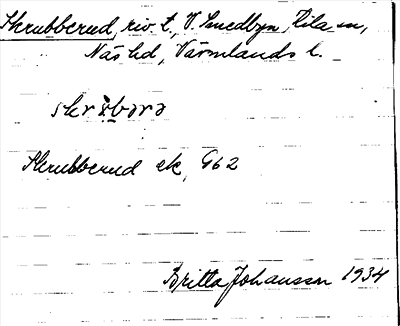 Skrubberud, riv. t., V. Smedbyn, Kila sn,
Näs hd, Värmlands l.
Skrubberud ek, G62
Britta Johansson 1934